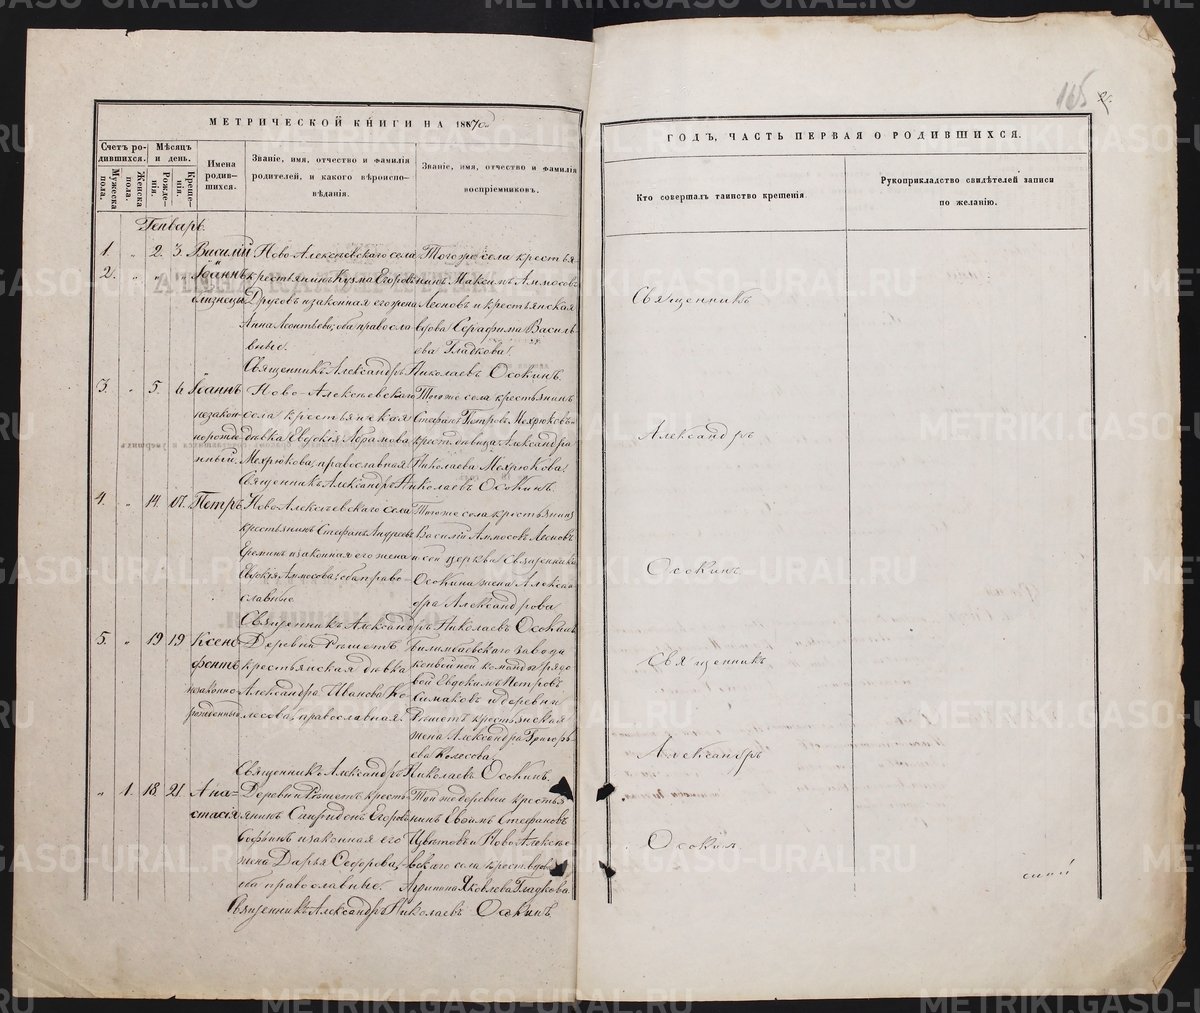 МЕТРИЧЕСКОЙ КНИГИ НА 1870
Счетъ ро-
дившихся.
Мужеска
пола.
Женска
пола.
Мѣсяцъ
и день.
Рожде-
нія.
Креще-
нія.
Имена
родив-
шихся.
Званіе, имя, отчество и фамилія
родителей, и какого вѣроиспо-
вѣданія.
Званіе, имя, отчество и фамилія
воспріемниковъ.
Генварь.
1. " 2. 3. Василій
2. " " " Іоаннъ
близнецы
Ново-Алексѣевскаго села
крестьянинъ Кузма Егоровъ
и законная его жена
Анна Леонтьева, оба православ-
ные.
Того же села крестья-
нинъ Максимъ Аммосовъ
Лесновъ и крестьянская
вдова Серафима Василь-
ева Гладкова.
Священникъ Александръ Николаевъ Осокинъ.
3. " 5. 6 Іоаннъ
незакон-
норожде-
нный.
Ново-Алексѣевскаго
села крестьянская
дѣвка Евдокія Абрамова
Мехрюкова, православная.
Того же села крестьянинъ
Стефанъ Петровъ Мехрюковъ и
крест. дѣвица Александра
Николаева Мехрюкова.
Священникъ Александръ Николаевъ Осокинъ.
4. " 14. 17. Петръ
Ново-Алексѣевскаго села
крестьянинъ Стефанъ Андреевъ
Ереминъ и законная его жена
Евдокія Аммосова, оба право-
славные
Того же села крестьянинъ
Василій Аммосовъ Лесновъ
и сей церкви Священника
Осокина жена Алексан-
дра Александрова
Священникъ Александръ Николаевъ Осокинъ
5. " 19 19 Ксено-
фонтъ
незаконно-
рожденный
Деревни Рѣшетъ
крестьянская дѣвка
Александра Иванова Ко-
лосова, православная.
Билимбаевскаго завода
конвойной команды рядо-
вой Евдокимъ Петровъ
Симаковъ и деревни
Рѣшетъ крестьянская
жена Александра Григорь-
ева Колосова.
Священникъ Александръ Николаевъ Осокинъ.
" 1. 18. 21. Ана-
стасія
Деревни Рѣшетъ кресть-
янинъ Спиридонъ Егоровъ
и законная его
жена Дарья Сидорова,
оба православные.
Той же деревни крестья-
нинъ Ефимъ Стефановъ
и Ново-Алексѣе-
вскаго села крест. вдова
Агрипина Яковлева Гладкова.
Священникъ Александръ Николаевъ Осокинъ
165
ГОДЪ, ЧАСТЬ ПЕРВАЯ О РОДИВШИХСЯ.
Кто совершалъ таинство крещенія.
Рукоприкладство свидѣтелей записи
по желанію.
Священникъ
Александръ
Осокинъ
Священникъ
Александръ
Осокин.
METRIKI.GASO-URAL.RU